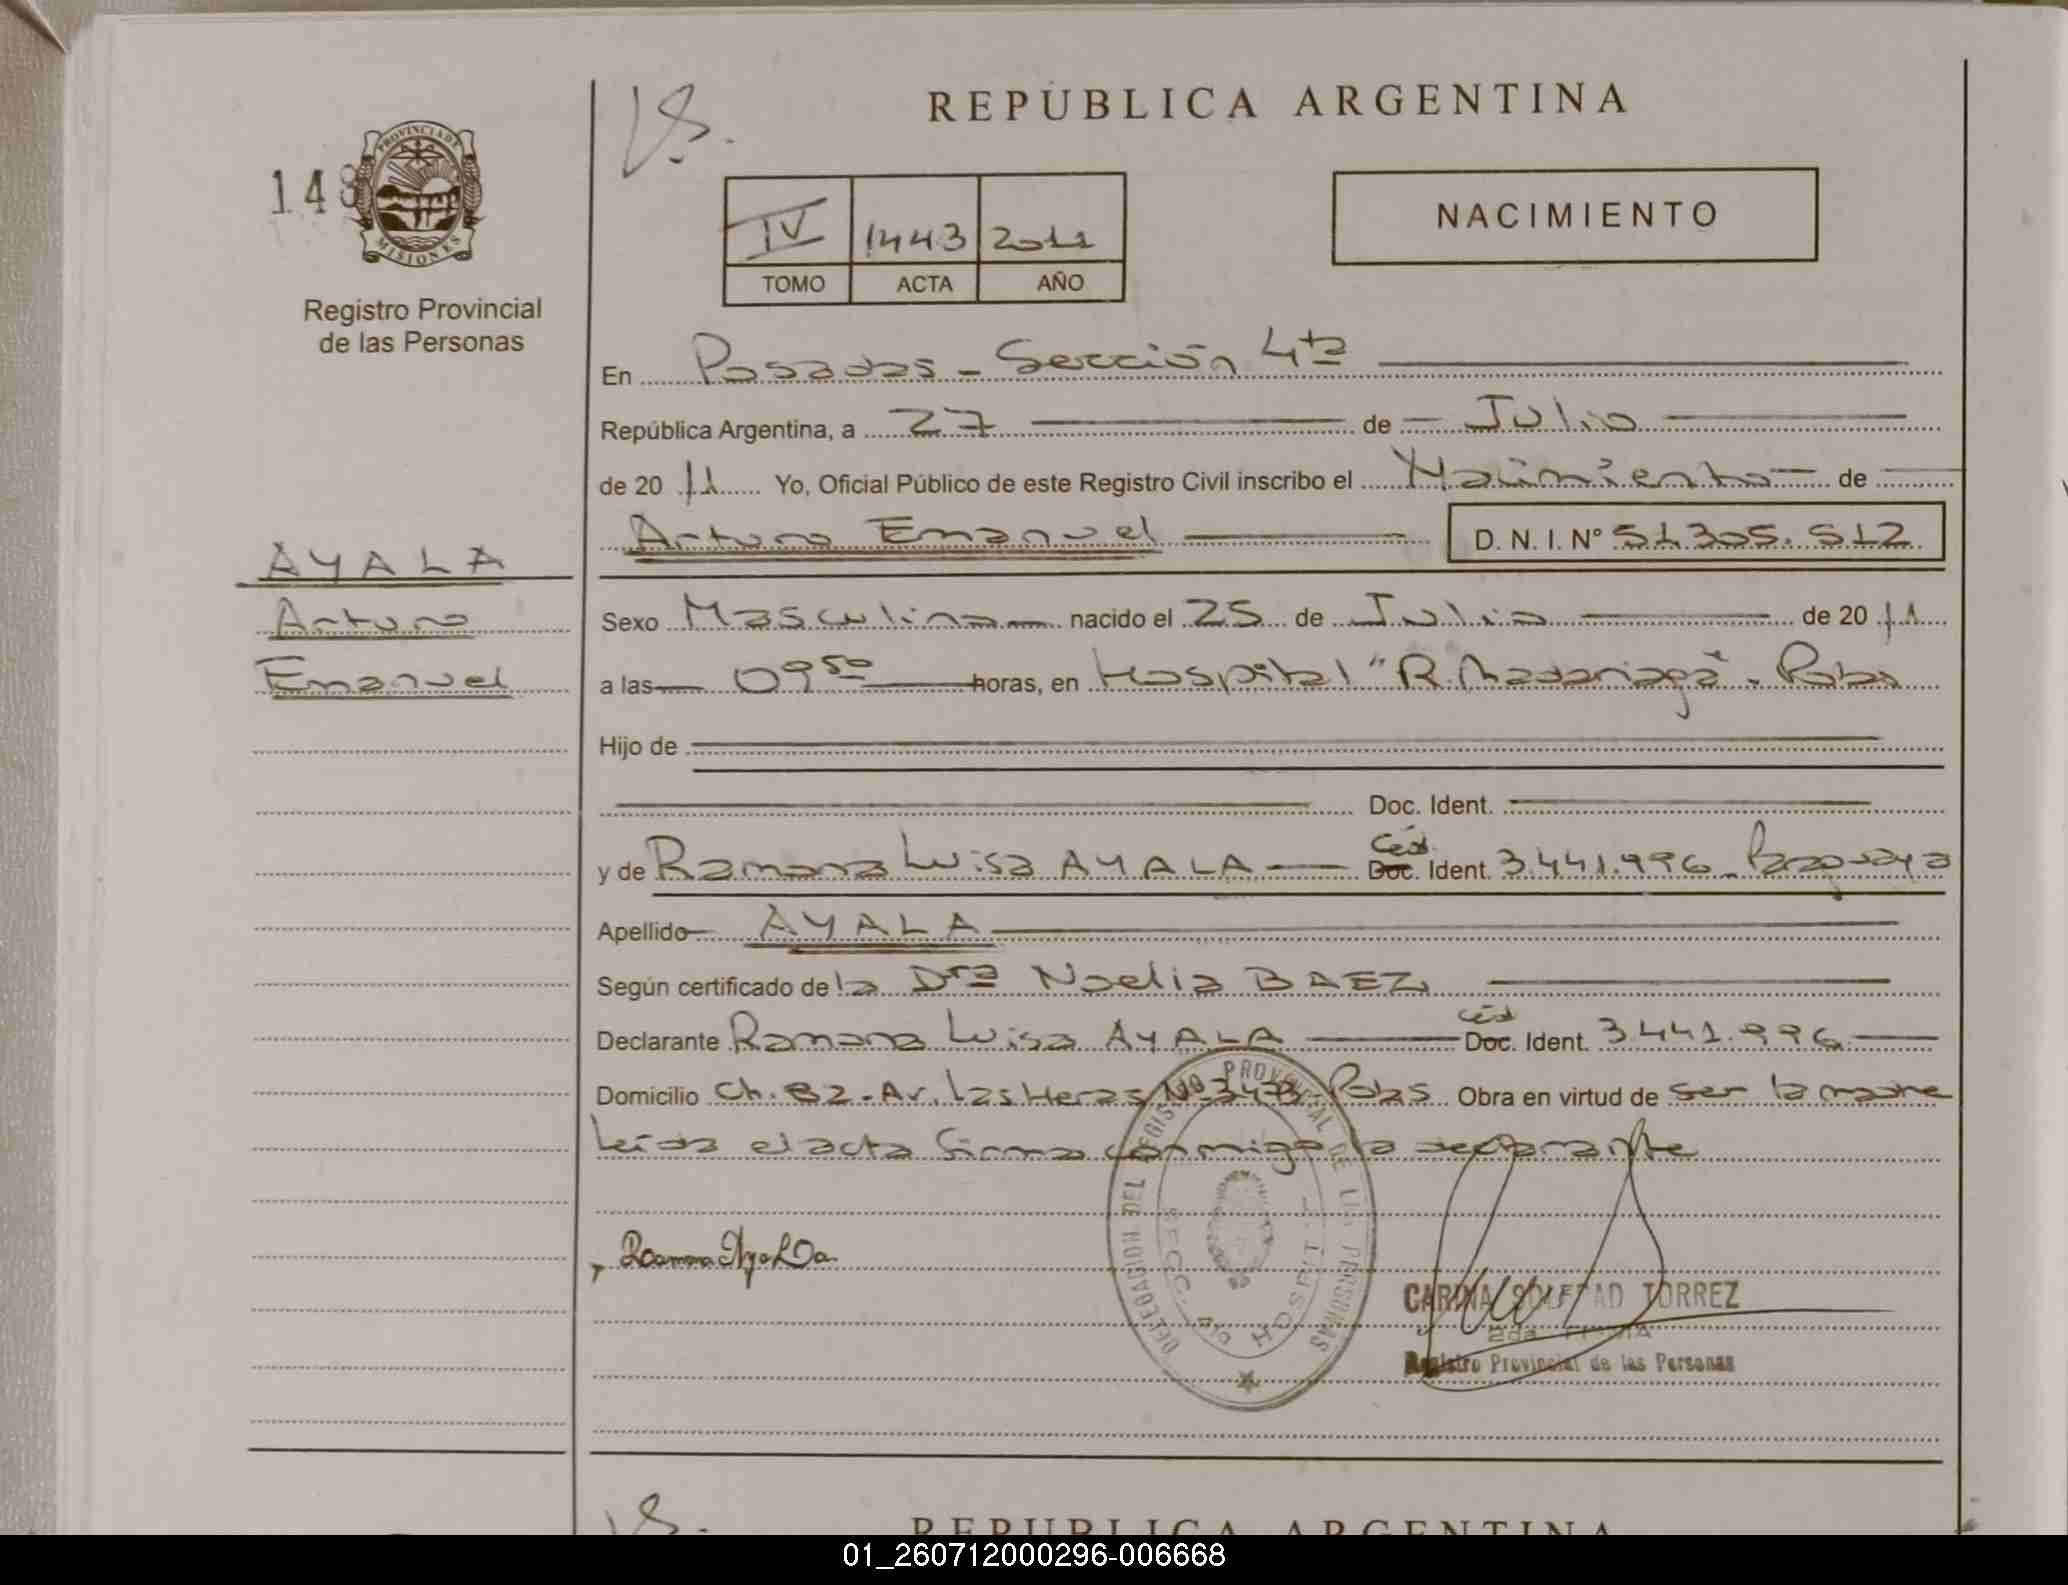 148
PROVINCIA DE
MISIONES
Registro Provincial
de las Personas
REPÚBLICA ARGENTINA
IV 1443 2011
TOMO ACTA AÑO
NACIMIENTO
En Posadas - Sección 4ta
República Argentina, a 27 de Julio
de 20 11 Yo, Oficial Público de este Registro Civil inscribo el Nacimiento de
Arturo Emanuel D. N. I. Nº 51.305.512
AYALA
Arturo
Emanuel
Sexo Masculino nacido el 25 de Julio de 20 11
a las 09 50 horas, en Hospital "R. Madariaga" - Pdas
Hijo de
Doc. Ident.
y de Ramona Luisa AYALA Céd. Doc. Ident. 3.441.996 - Paraguaya
Apellido AYALA
Según certificado de la Dra Noelia BAEZ
Declarante Ramona Luisa AYALA Céd Doc. Ident. 3.441.996
Domicilio Ch. 82 - Av. Las Heras Nº 3473 - Pdas Obra en virtud de ser la madre
Leída el acta firma conmigo la declarante
Ramona Ayala
DELEGACION DEL REGISTRO PROVINCIAL DE LAS PERSONAS
SECC. 4ta HOSPITAL
CARINA SOLEDAD TORREZ
2da FIRMA
Registro Provincial de las Personas
REPUBLICA ARGENTINA
01_260712000296-006668